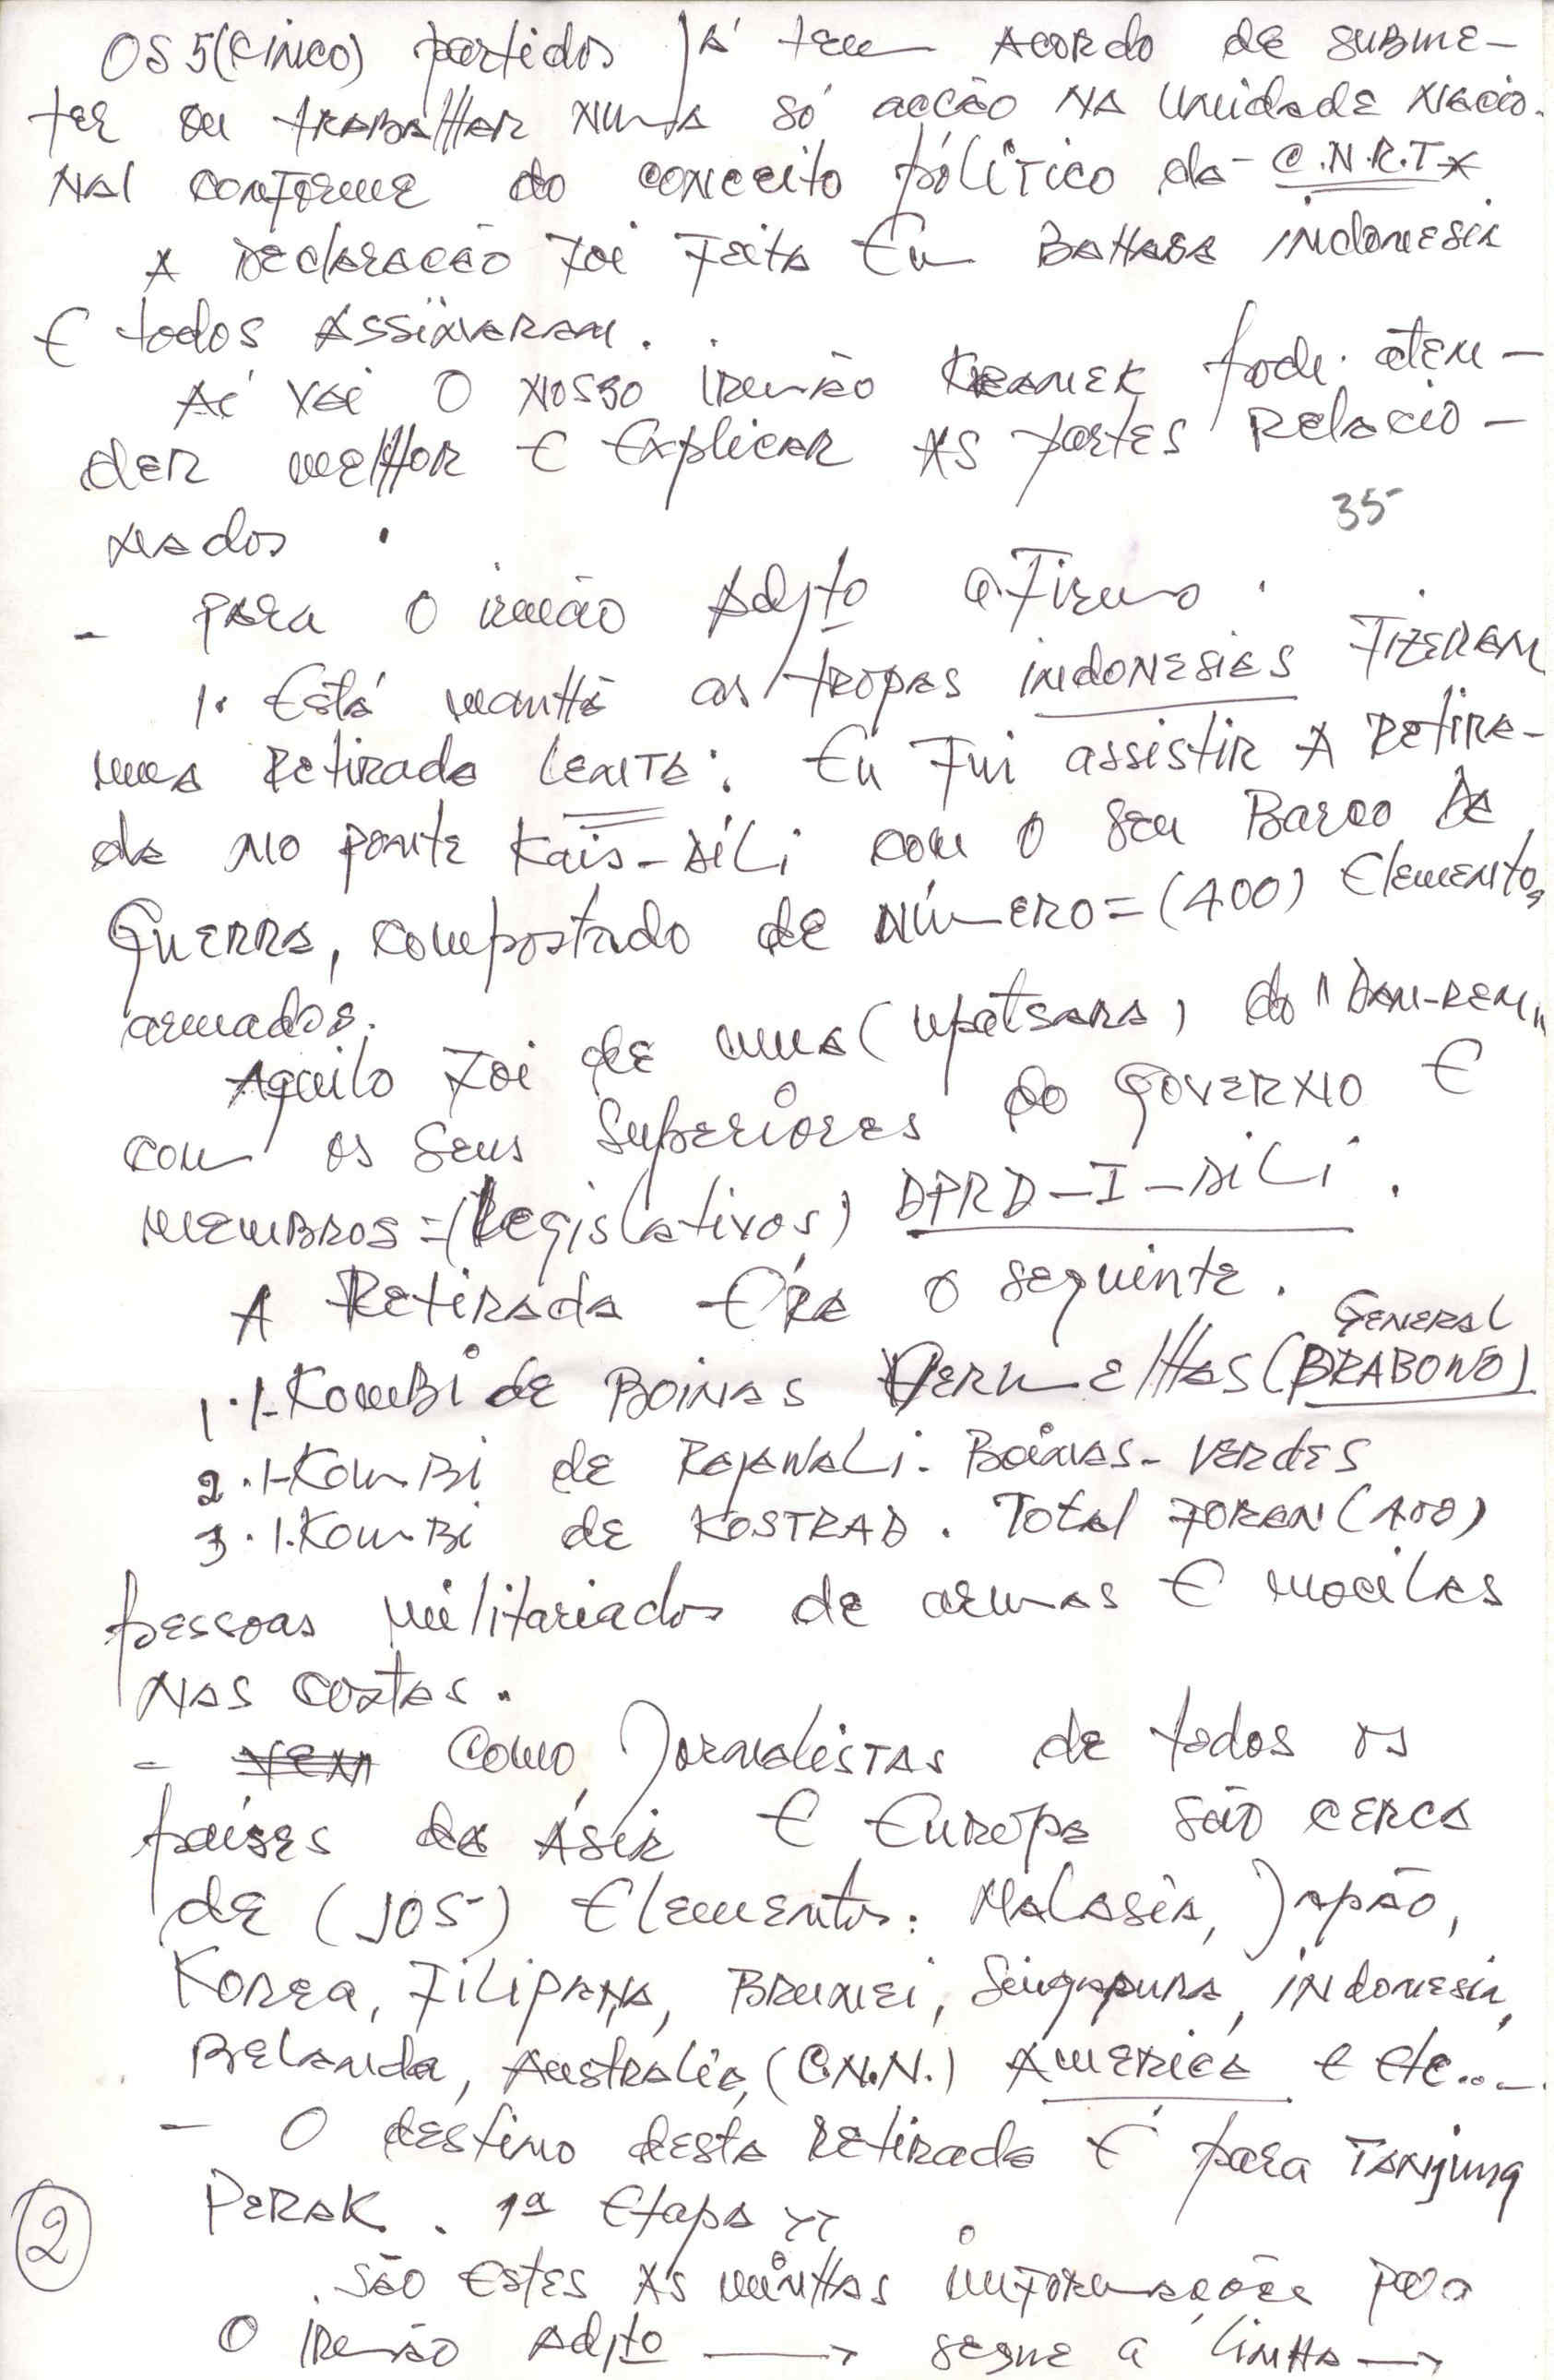 OS 5 (CINCO) partidos já tem ACORDO de SUBME-
TER ou TRABALHAR NUMA só acção NA Unidade NACIO-
NAL conforme do conceito político da C.N.R.T
A DEclaração Foi Feita Em BAHASA indonesia
E todos ASSiNARAM.
Aí vai O NOSSO IRMÃO KRAMEK pode aten-
der melHor E Explicar AS partes RElacio-
NADOS.
35
- PARA O irmão Adjto aFirmo.
1. Está manhã as tropas indonesias FIZERAM
uma Retirada lenta: Eu Fui assistir A Retira-
da no ponte Kais-DiLi com o seu Barco de
Guerra, compostado de NÚMERO=(400) Elementos
armados.
Aquilo Foi de uma (upatsara) do "DAN-REM"
com os seus Superiores do GOVERNO E
MEMBROS=(Legislativos) DPRD-I-DiLi.
A Retirada ERA o seguinte.
GENERAL
1.1-KomBi de BOiNAS VERMElHAS (PRABOWO)
2.1-KomBi de RAJAWALi. Boinas-VERDES
3.1.KomBi de KOSTRAD. Total FORAM (400)
pessoas militariados de armas E mocilas
NAS costas.
- Como Jornalistas de todos os
países da Ásia E Europa são cerca
de (105) Elementos: Malasia, Japão,
Korea, FILIPANA, BRUNEi, Singapura, iNdonesia,
BElanda, Australia, (C.N.N.) AMERICA e etc...-
- O destino desta Retirada É para TANjung
PERAK. 1ª Etapa
São Estes AS minHas inFormações para
O IRMÃO Adjto → segue a linHa →
2